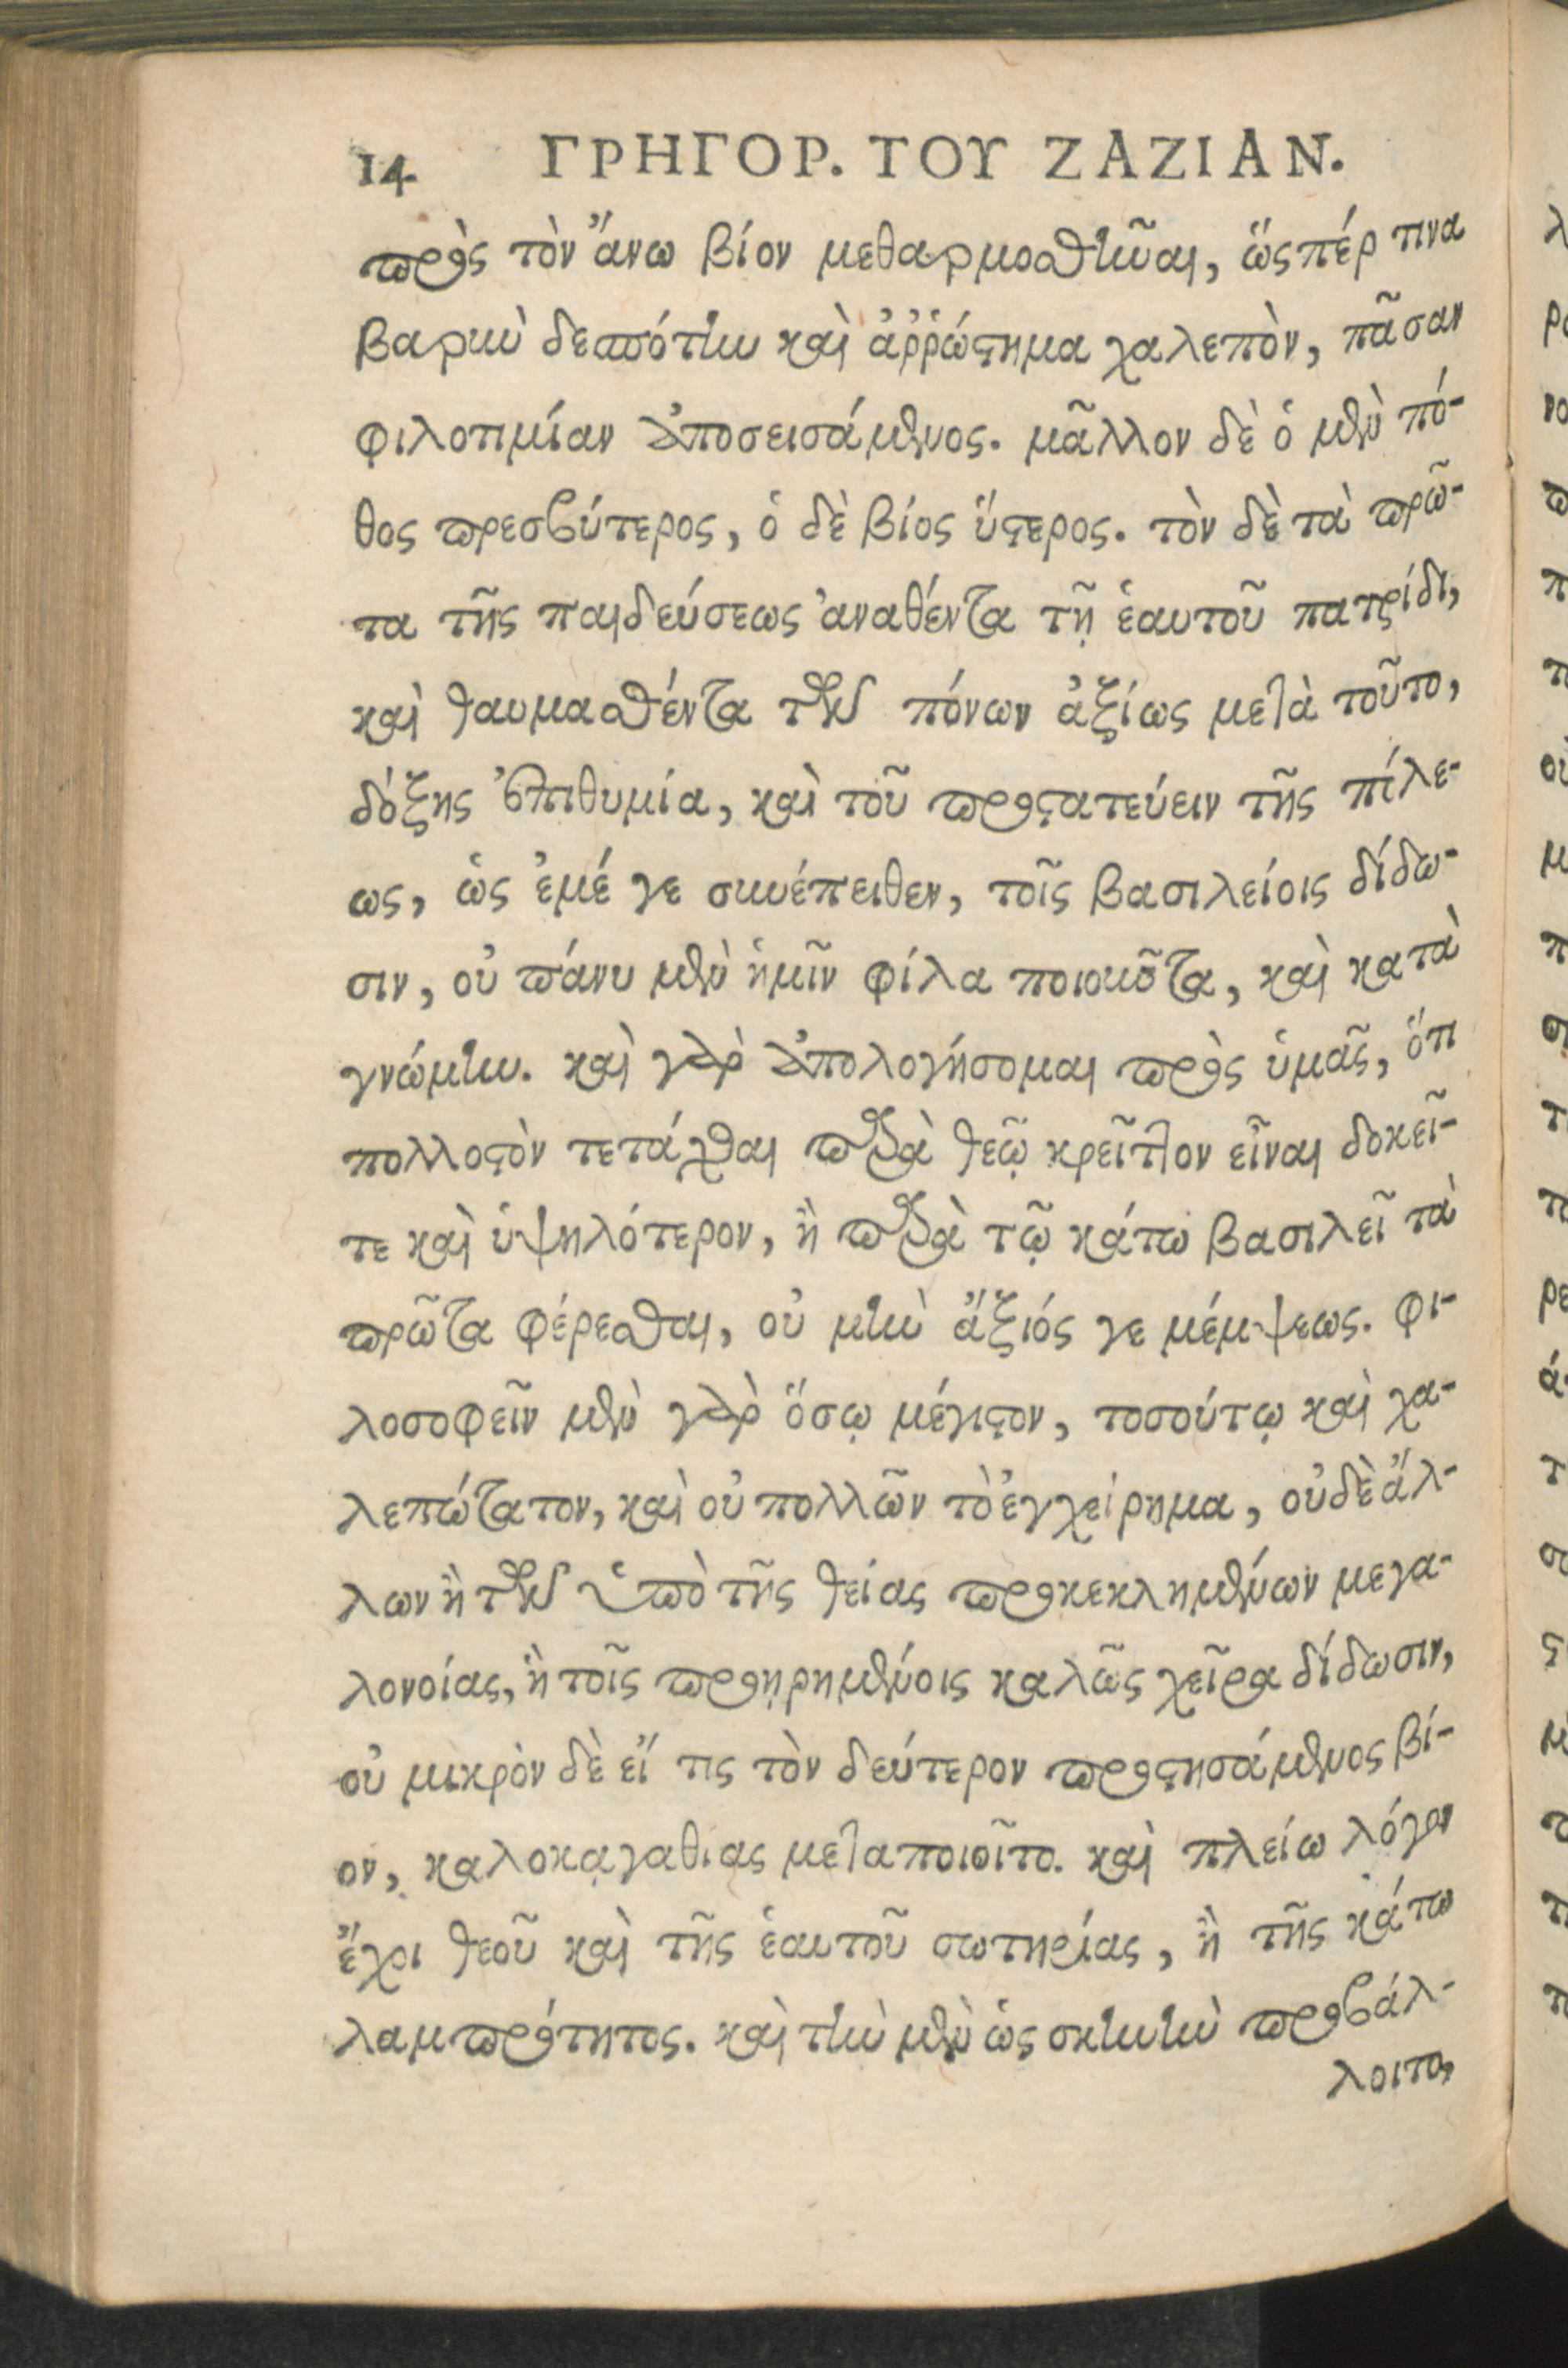 14 ΓΡΗΓΟΡ. ΤΟΥ ΖΑΖΙΑΝ.
πρὸς τὸν ἄνω βίον μεθαρμοσθῆναι, ὥςπέρ τινα
βαρὺν δεσπότην καὶ ἀῤῥώστημα χαλεπὸν, πᾶσαν
φιλοτιμίαν ἀποσεισάμενος. μᾶλλον δὲ ὁ μὲν πό-
θος πρεσβύτερος, ὁ δὲ βίος ὕστερος. τὸν δὲ τὰ πρῶ-
τα τῆς παιδεύσεως ἀναθέντα τῇ ἑαυτοῦ πατρίδι,
καὶ θαυμασθέντα τῶν πόνων ἀξίως μετὰ τοῦτο,
δόξης ἐπιθυμία, καὶ τοῦ προστατεύειν τῆς πίλε-
ως, ὡς ἐμέ γε συνέπειθεν, τοῖς βασιλείοις δίδω-
σιν, οὐ πάνυ μὲν ἡμῖν φίλα ποιοῦντα, καὶ κατὰ
γνώμην. καὶ γὰρ ἀπολογήσομαι πρὸς ὑμᾶς, ὅτι
πολλοστὸν τετάχθαι παρὰ θεῷ κρεῖττον εἶναι δοκεῖ-
τε καὶ ὑψηλότερον, ἢ παρὰ τῷ κάτω βασιλεῖ τὰ
πρῶτα φέρεσθαι, οὐ μὴν ἄξιός γε μέμψεως. φι-
λοσοφεῖν μὲν γὰρ ὅσῳ μέγιστον, τοσούτῳ καὶ χα-
λεπώτατον, καὶ οὐ πολλῶν τὸ ἐγχείρημα, οὐδὲ ἄλ-
λων ἢ τῶν ὑπὸ τῆς θείας προκεκλημένων μεγα-
λονοίας, ἣ τοῖς προῃρημένοις καλῶς χεῖρα δίδωσιν,
οὐ μικρὸν δὲ εἴ τις τὸν δεύτερον προστησάμενος βί-
ον, καλοκᾳγαθίας μεταποιοῖτο. καὶ πλείω λόγον
ἔχοι θεοῦ καὶ τῆς ἑαυτοῦ σωτηρίας, ἢ τῆς κάτω
λαμπρότητος. καὶ τὴν μὲν ὡς σκηνὴν προβάλ-
λοιτο,